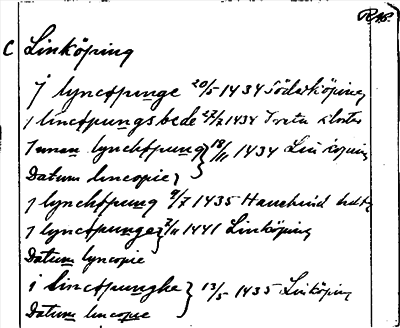 RAP.
C Linköping
J lyncopunge 20/5 1434 Söderköping
j lincopungsbede 27/7 1434 Vreta kloster
J man lynchopung } 18/11 1434 Linköping
Datum lincopie }
j lynchopung 9/7 1435
j lyncopunge } 7/11 1441 Linköping
Datum lyncopie
i lincopunghe } 13/5 1435 Linköping
Datum lincopie